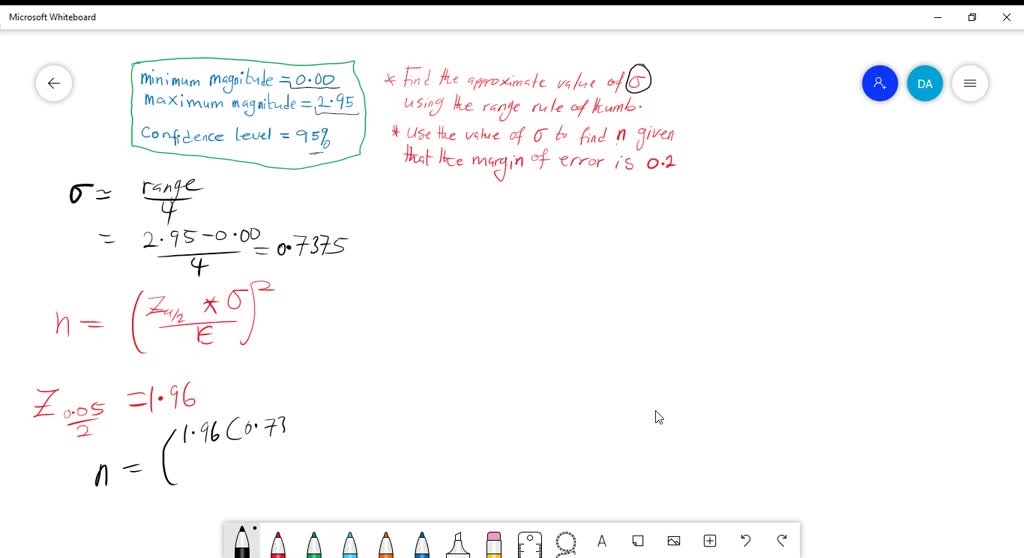 Microsoft Whiteboard
DA
minimum magnitude = 0.00
maximum magnitude = 2.95
Confidence level = 95%
* Find the approximate value of σ
using the range rule of thumb.
* Use the value of σ to find n given
that the margin of error is 0.2
σ ≃ range/4
= 2.95-0.00/4 = 0.7375
n = (Zα/2 * σ/E)²
Z0.05/2 = 1.96
n = (1.96(0.73
A